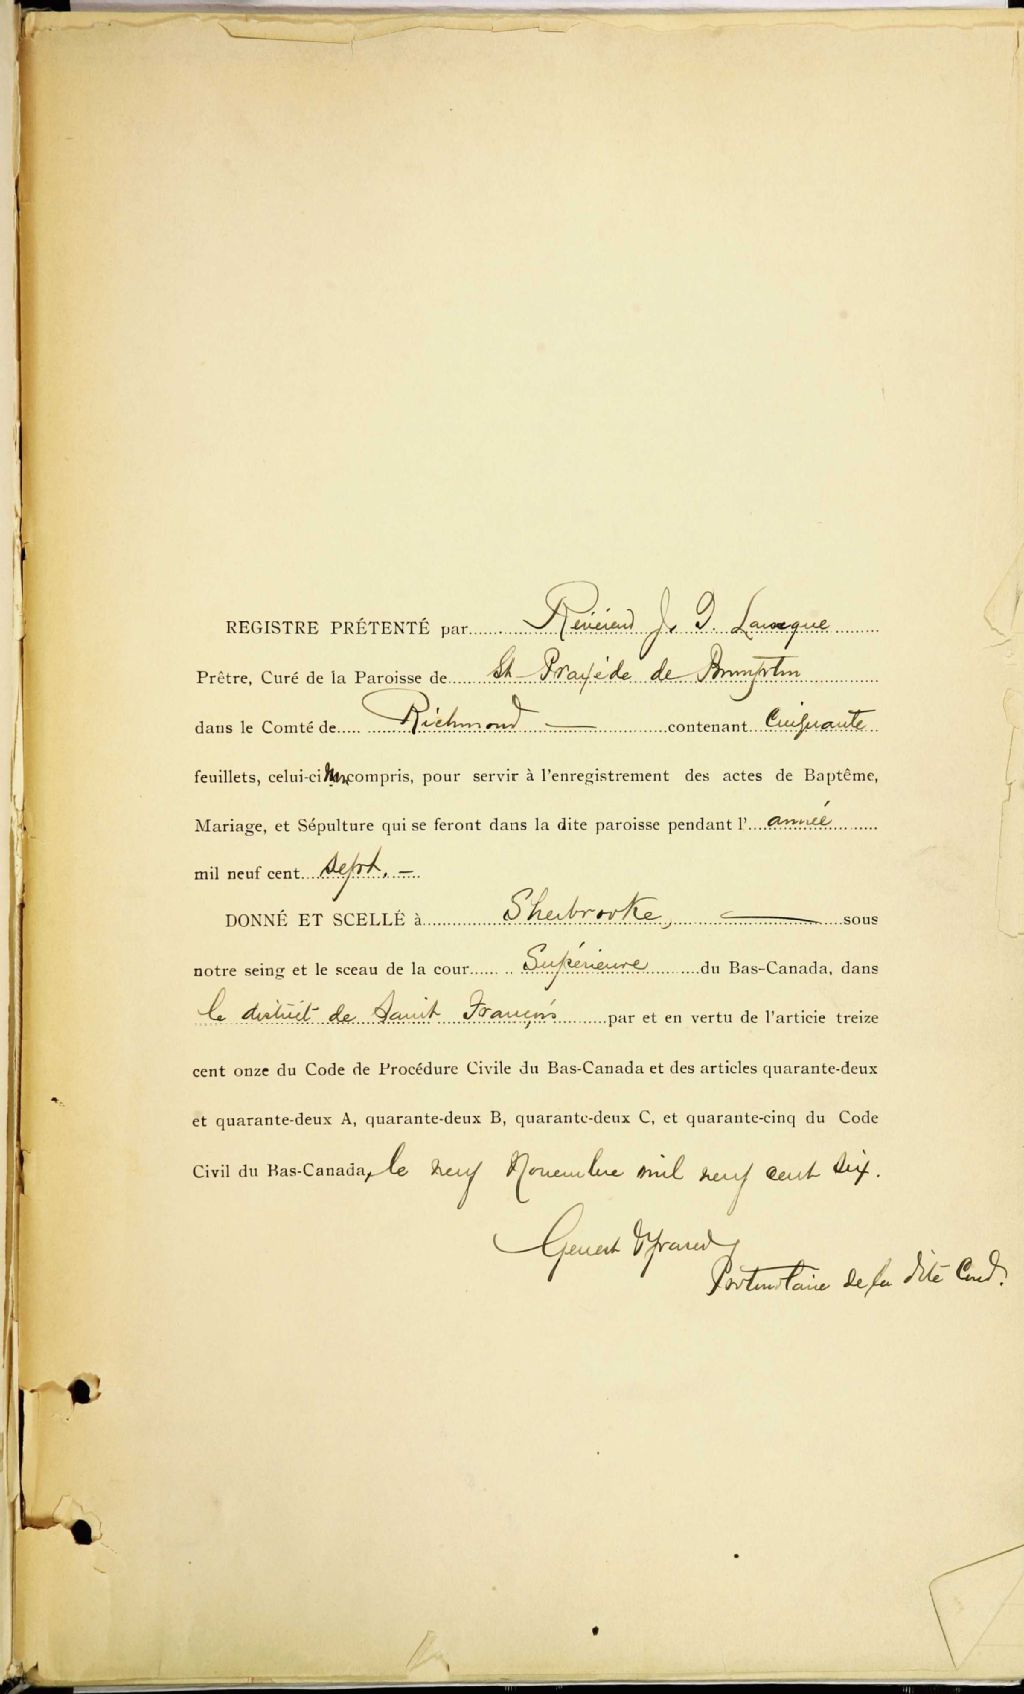 REGISTRE PRÉTENTÉ par Révérend J. D. Larocque
Prêtre, Curé de la Paroisse de St Praxède de Brompton
dans le Comté de Richmond — contenant Cinquante
feuillets, celui-ci non compris, pour servir à l'enregistrement des actes de Baptême,
Mariage, et Sépulture qui se feront dans la dite paroisse pendant l' année
mil neuf cent Sept. —
DONNÉ ET SCELLÉ à Sherbrooke, — sous
notre seing et le sceau de la cour Supérieure du Bas-Canada, dans
le district de Saint François par et en vertu de l'articie treize
cent onze du Code de Procédure Civile du Bas-Canada et des articles quarante-deux
et quarante-deux A, quarante-deux B, quarante-deux C, et quarante-cinq du Code
Civil du Bas-Canada, le neuf Novembre mil neuf cent Six.
Protonotaire de la dite Cour.